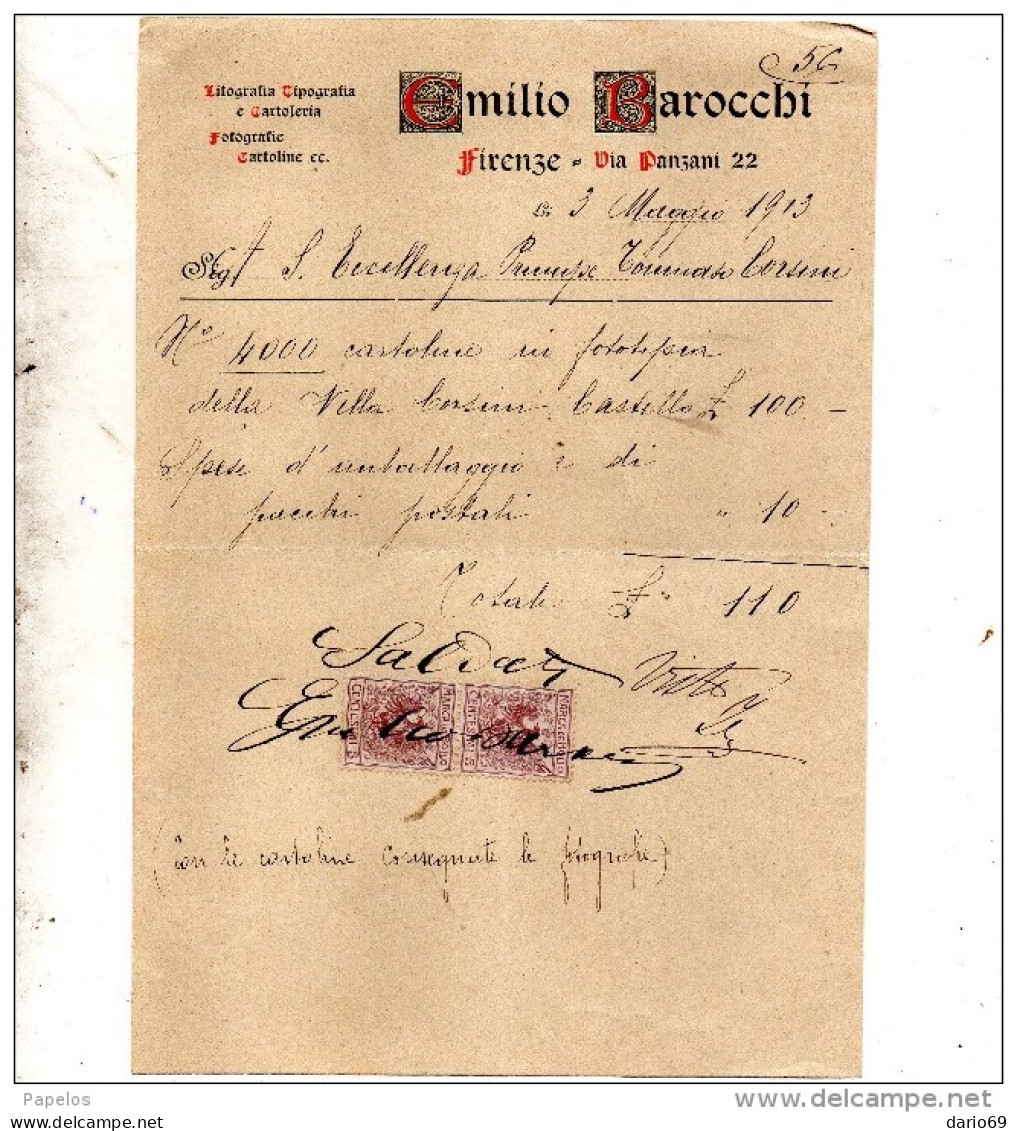 56
Litografia Tipografia
e Cartoleria
Fotografie
Cartoline ec.
Emilio Barocchi
Firenze - Via Panzani 22
li 3 Maggio 1913
Sig. A S. Eccellenza Principe Tommaso Corsini
N° 4000 cartoline in fototipia
della Villa Corsini Castello £ 100 -
Spese d'imballaggio e di
pacchi postali " 10 -
Totale £ 110
Saldato Visto
Emilio Barocchi
CENTESIMI 5 MARCA DA BOLLO
CENTESIMI 5 MARCA DA BOLLO
(Con le cartoline consegnate le fotografie)
Papelos
www.delcampe.net
dario69